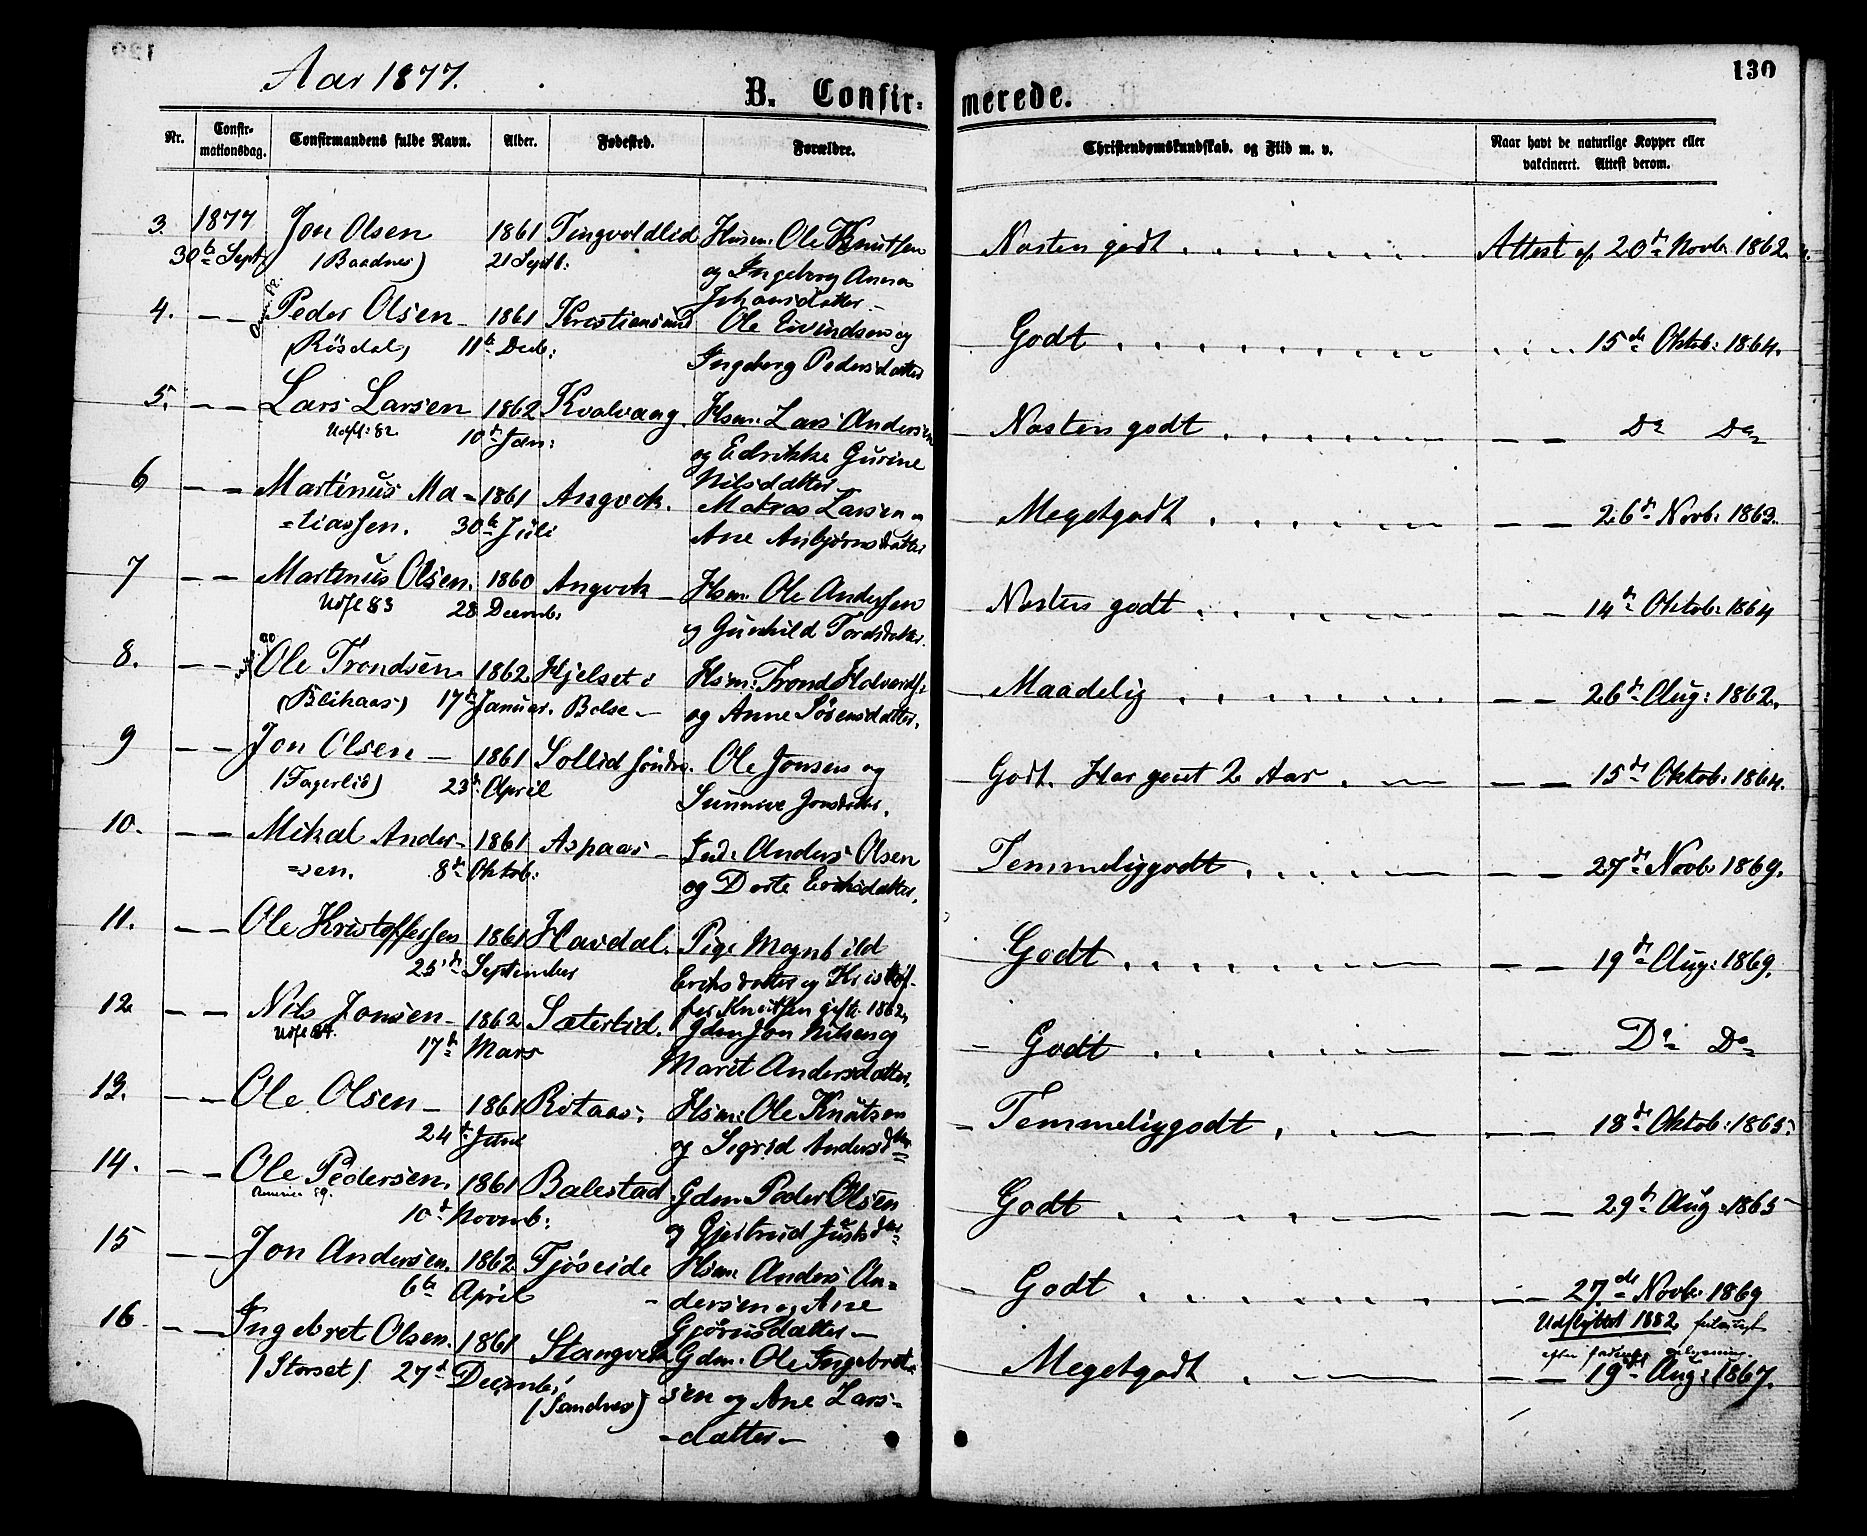 Aar 1877.
B. Confirmerede.
130
Nr. Confirmationsdag. Confirmandens fulde Navn. Alder. Fødested. Forældre. Christendomskundskab. og Flid m. v. Naar havt de naturlige Kopper eller vakcineret. Attest derom.
3. 1877 Jon Olsen 1861 Tingvoldlid Husm: Ole Knutsen Næsten godt Attest af 20de Novb. 1862.
30te Sept. (Baadnes) 21 Septb: og Ingeborg Anna
Johansdatter
4. — — Peder Olsen 1861 Kristiansund Ole Eivindsen og Godt 15de Oktob: 1864.
(Rösdal) 11te Decb: Ingeborg Pedersdatter
5. — — Lars Larsen 1862 Kvalvaag Hsm: Lars Andersen Næsten godt — — Do Do
Udfl: 82 10de Jan: og Edrikke Gurine
Nilsdatter
6 — — Martinus Ma- 1861 Angvok. Matias Larsen Megetgodt — — 26de Novb: 1863.
=tiassen. 30te Juli Ane Anbjörnsdatter
7 — — Martinus Olsen. 1860 Angvok Hsm: Ole Anderssen Næsten godt — — 14de Oktob: 1864
Udfl 83 28 Decemb: og Gunhild Tordsdatter
8. — — Ole Trondsen 1862 Hjelset i Hsm: Trond Maadelig — — 26de Aug: 1862.
17de Januar. Bolsø og Anne
9 — — Jon Olsen 1861 Sollid Ole Jonsen og Godt. Har gaaet 2 Aar — 15de Oktob: 1864.
(Fagerlid) 23de April Sunnive Jonsdatter.
10. — — Mikal Ander- 1861 Aspaas Anders Olsen Temmeliggodt — — 27de Novb: 1869.
=sen. 8de Oktob: og Dorte Eriksdatter.
11. — — Ole Kristoffersen 1861 Havdal. Pige Magnhild Godt — — 19de Aug: 1869.
25de September Eriksdatter og Kristof-
fer Knutsen gift 1862.
12 — — Nils Jonsen 1862 Sæterlid. Gdm Jon Nilsen og Godt — — Do Do
Udfl 84. 17de Mars Marit Andersdatter.
13. — — Ole Olsen 1861 Rotaas. Hsm: Ole Knutsen Temmeliggodt — — 18de Oktob: 1865.
24de Juni og Sigrid Andersdtr
14. — — Ole Pedersen. 1861 Bolestad Gdm. Peder Olsen Godt — — 29de Aug 1865
10de Novmb: og Gjertrud
15 — — Jon Andersen. 1862 Tjöseide Hsm: Anders An= Godt — — 27de Novb: 1869
6te April dersen og Ane Udflyttet 1882
Gjörusdatter
16 — — Ingebret Olsen. 1861 Stangvik Gdm: Ole Ingebret- Megetgodt — — 19de Aug: 1867.
(Storset) 27de Decemb: (Sandnes) sen og Ane Lars-
-datter-